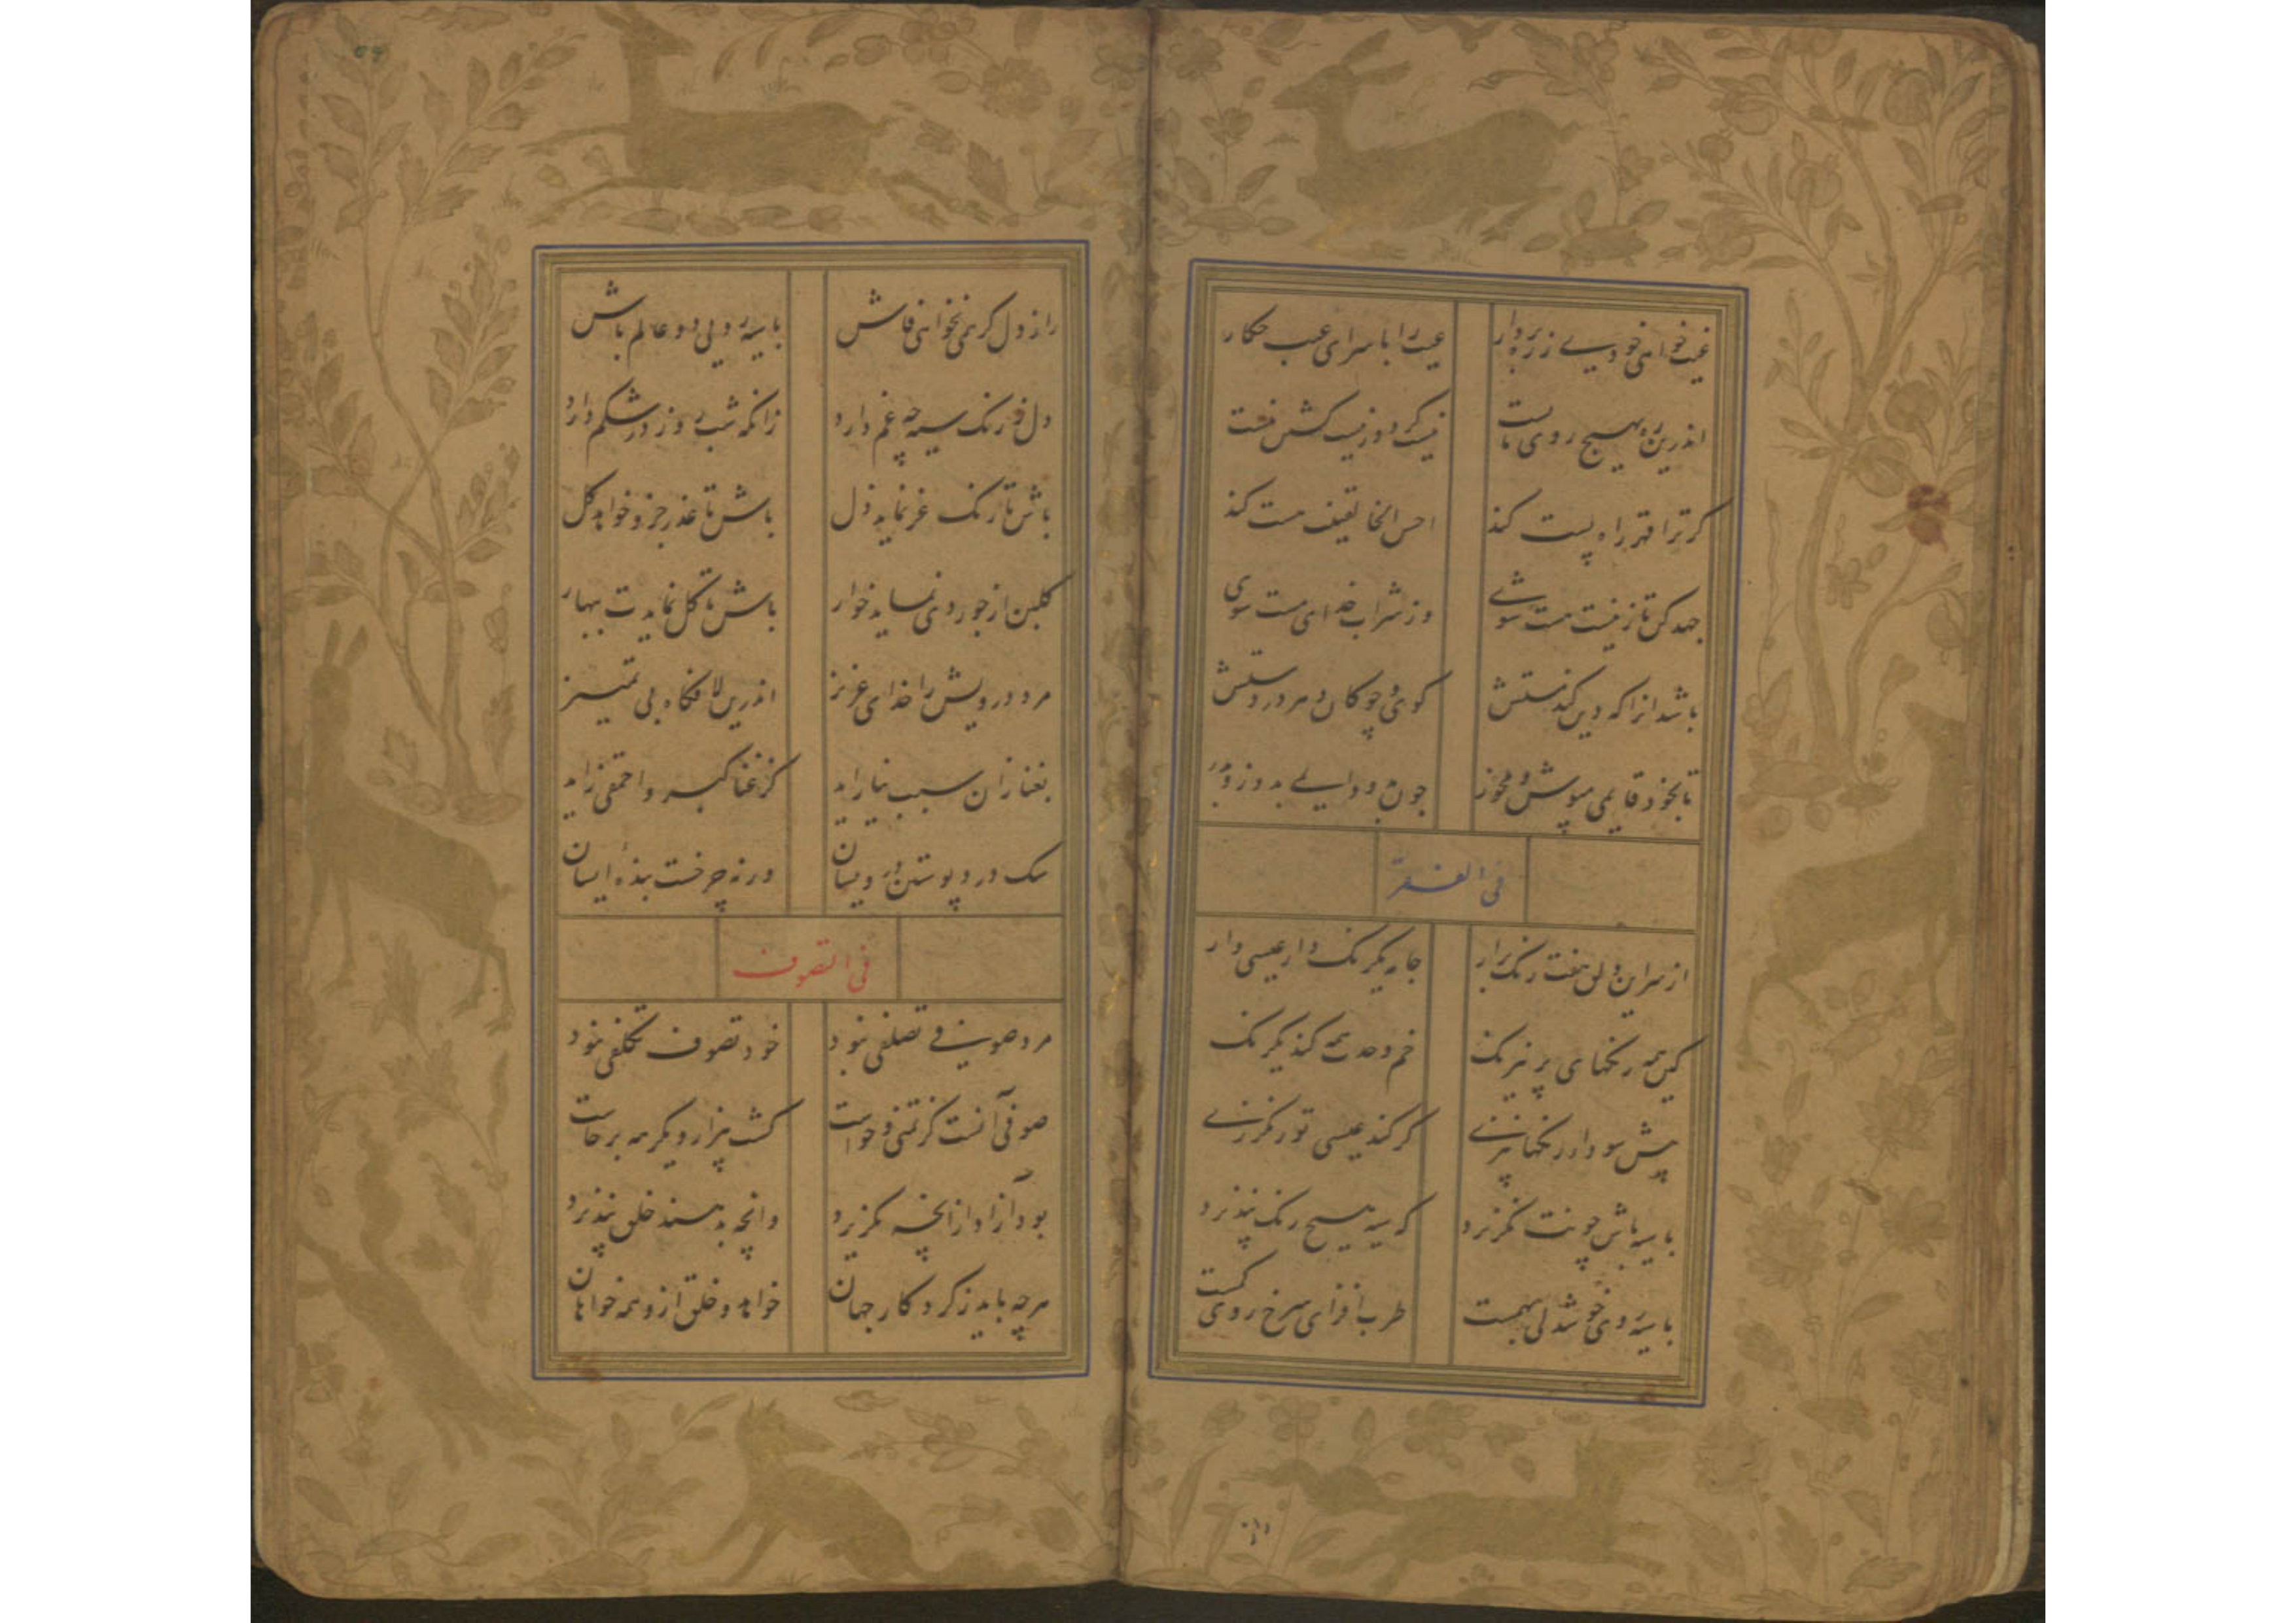 غیب خواهی خودی ز ره بردار
عیب را با سرای غیب چکار
اندرین ره بهیچ روی
نیست گرد و ز نیست گشتن
گر ترا قهر راه پست کند
احسن الخالقینت هست کند
جهد کن تا ز نیست هست شوی
وز شراب خدای مست شوی
باشد انرا که دین کند هستش
گوی و چوگان دهر در دستش
تا بخود قایمی مپوش و مخور
چون بدو دایمی بدوز و بدر
فی الفقر
از سر این دلق هفت رنگ برار
جامه یکرنگ دار عیسی وار
کین همه رنگهای پر نیرنگ
خم وحدت همه کند یکرنگ
پیش سودا در رنگها نپزی
گر کند عیسی تو رنگرزی
با سیه باش چونت نگزیرد
که سیه هیچ رنگ نپذیرد
با سیه روی خوشدلی بهمست
طرب افزای سرخ روی کمست
راز دل گر همی نخواهی فاش
با سیه رویی دو عالم باش
دل رنگ سیه چه غم دارد
زانکه شب روز در شکم دارد
باش تا رنگ عز نماید ذل
باش تا عذر جزو خواهد کل
گلبن ار نماید خوار
باش تا گل نمایدت ببهار
مرد درویش را خدای عزیز
اندرین لافگاه بی تمییز
بغنا زان سبب نیاراید
کز غنا کبر و احمقی زاید
سگ درد پوستین درویشان
ورنه چرخست بنده ایشان
فی التصوف
مرد صوفی تصلفی نبود
خود تصوف تکلفی نبود
صوفی آنست کز تمنی و خواست
گشت بیزار و یکره برخاست
بود آزاد ازانچه نگزیرد
وانچه بدهند خلق نپذیرد
هرچه باید ز کردگار جهان
خواهد و خلق ازو همه خواهان